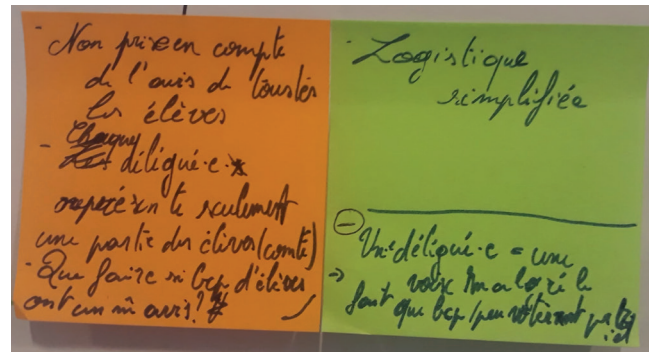 - Non prise en compte
de l'avis de toustes
les élèves
- Chaque
délégué·e
représente seulement
une partie des élèves (comité)
- Que faire si bcp d'élèves
ont un m̂ avis ?
- Logistique
simplifiée
⊖ Un·e délégué·e = une
→ voix malgré le
fait que bcp/peu